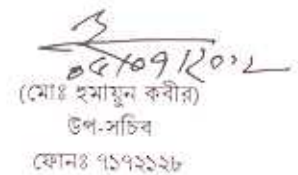 ০৫/০৭/২০১২
(মোঃ হুমায়ুন কবীর)
উপ-সচিব
ফোনঃ ৭১৭২১২৮